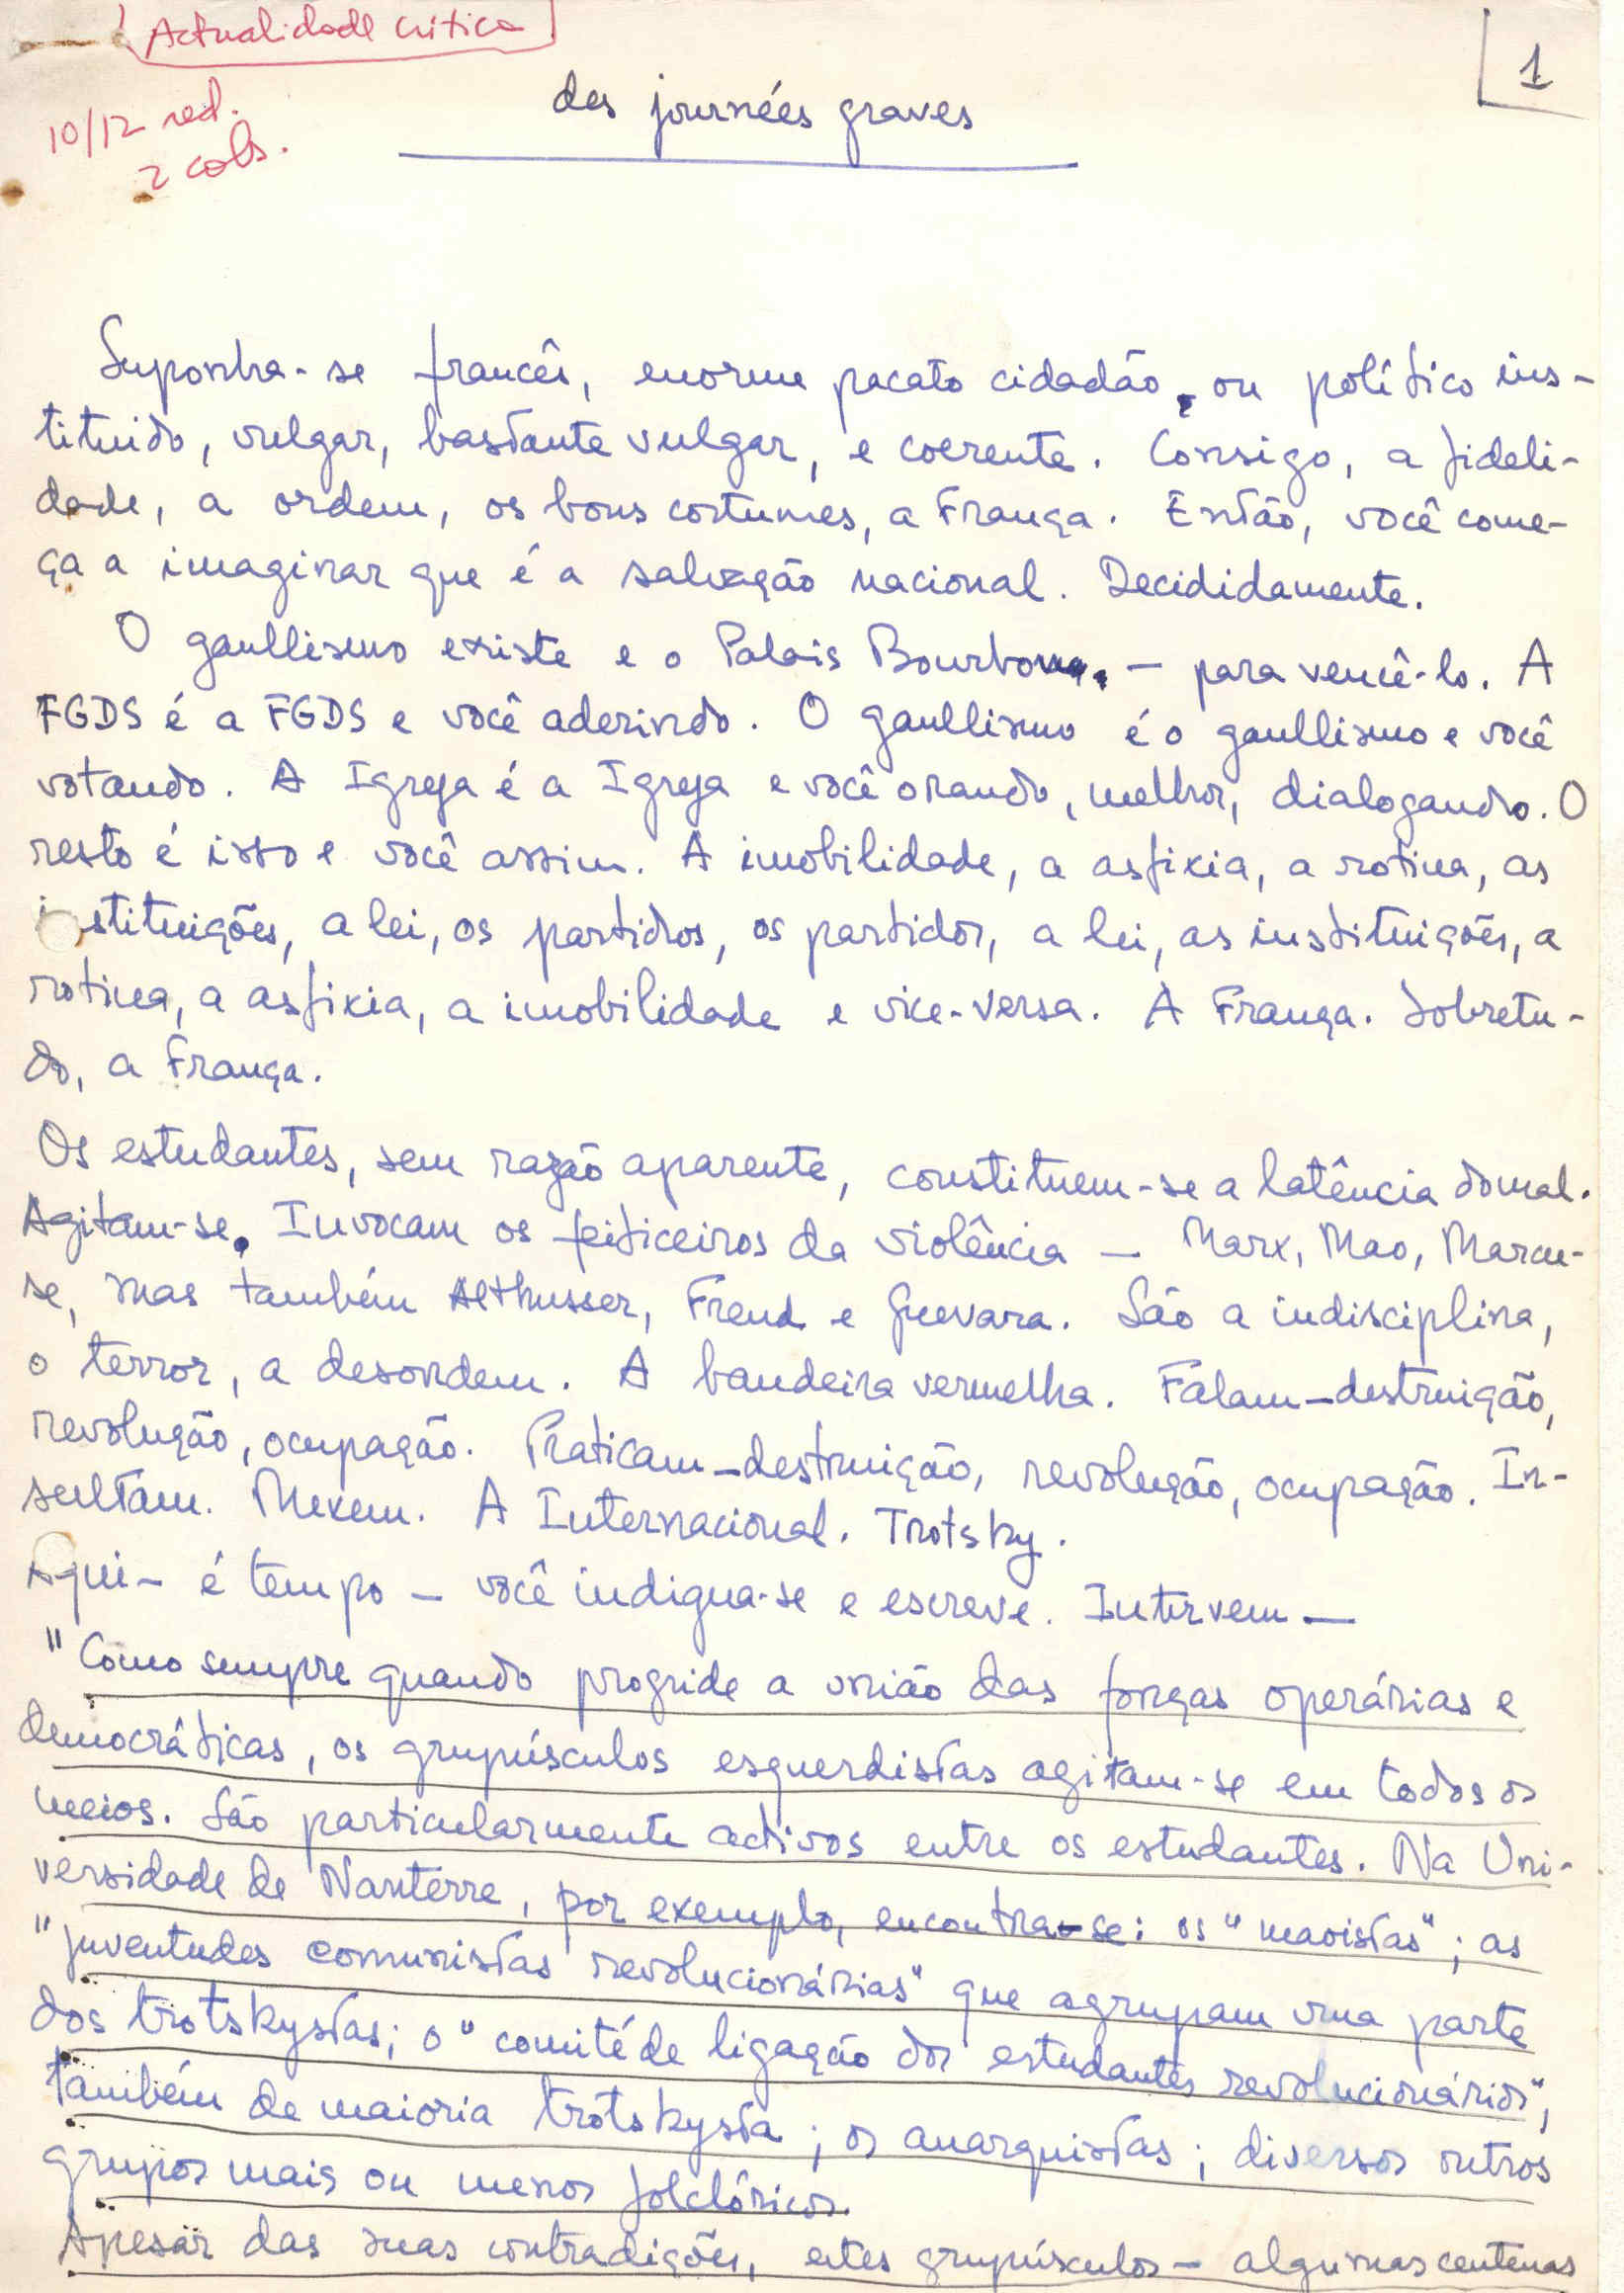 Actualidade crítica
1
des journées graves
10/12 red.
2 cols.
Suponha-se francês, enorme pacato cidadão, ou político ins-
tituido, vulgar, bastante vulgar, e coerente. Consigo, a fideli-
dade, a ordem, os bons costumes, a França. Então, você come-
ça a imaginar que é a salvação nacional. Decididamente.
O gaullismo existe e o Palais Bourbon. — para vencê-lo. A
FGDS é a FGDS e você aderindo. O gaullismo é o gaullismo e você
votando. A Igreja é a Igreja e você orando, melhor, dialogando. O
resto é isso e você assim. A imobilidade, a asfixia, a rotina, as
i stituições, a lei, os partidos, os partidos, a lei, as instituições, a
rotina, a asfixia, a imobilidade e vice-versa. A França. Sobretu-
do, a França.
Os estudantes, sem razão aparente, constituem-se a latência do mal.
Agitam-se. Invocam os feiticeiros da violência — Marx, Mao, Marcu-
se, mas também Althusser, Freud e Guevara. São a indisciplina,
o terror, a desordem. A bandeira vermelha. Falam — destruição,
revolução, ocupação. Praticam — destruição, revolução, ocupação. In-
sultam. Mexem. A Internacional. Trotsky.
Aqui — é tempo — você indigna-se e escreve. Intervem —
"Como sempre quando progride a união das forças operárias e
democráticas, os grupúsculos esquerdistas agitam-se em todos os
meios. São particularmente activos entre os estudantes. Na Uni-
versidade de Nanterre, por exemplo, encontra-se: os "maoistas"; as
"juventudes comunistas revolucionárias" que agrupam uma parte
dos trotskystas; o "comité de ligação dos estudantes revolucionários",
também de maioria trotskysta; os anarquistas; diversos outros
grupos mais ou menos folclóricos.
Apesar das suas contradições, estes grupúsculos — algumas centenas